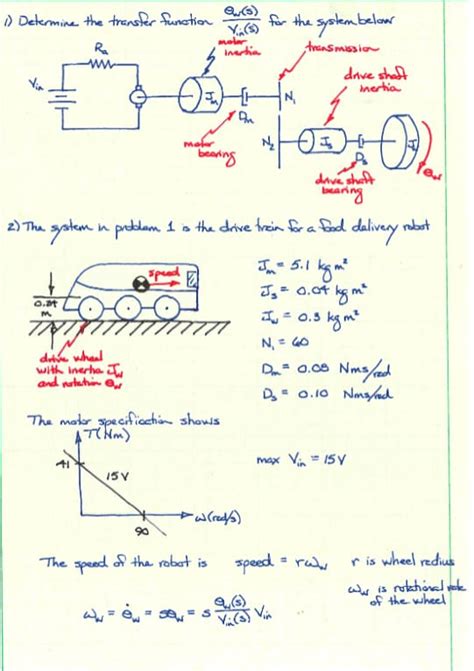 1) Determine the transfer function Θw(s)/Vin(s) for the system below
motor inertia
transmission
Ra
drive shaft inertia
Vin
Jm
N1
Dm
motor bearing
N2
Js
Ds
θw
drive shaft bearing
2) The system in problem 1 is the drive train for a food delivery robot
speed
m
drive wheel
with inertia Jw
and rotation θw
Jm = 5.1 kg m²
Js = 0.04 kg m²
Jw = 0.3 kg m²
N1 = 60
Dm = 0.08 Nms/rad
Ds = 0.10 Nms/rad
The motor specification shows
T(Nm)
41
15V
90
ω(rad/s)
max Vin = 15V
The speed of the robot is speed = rωw r is wheel radius
ωw is rotational rate of the wheel
ωw = θ̇w = sθw = s Θw(s)/Vin(s) Vin